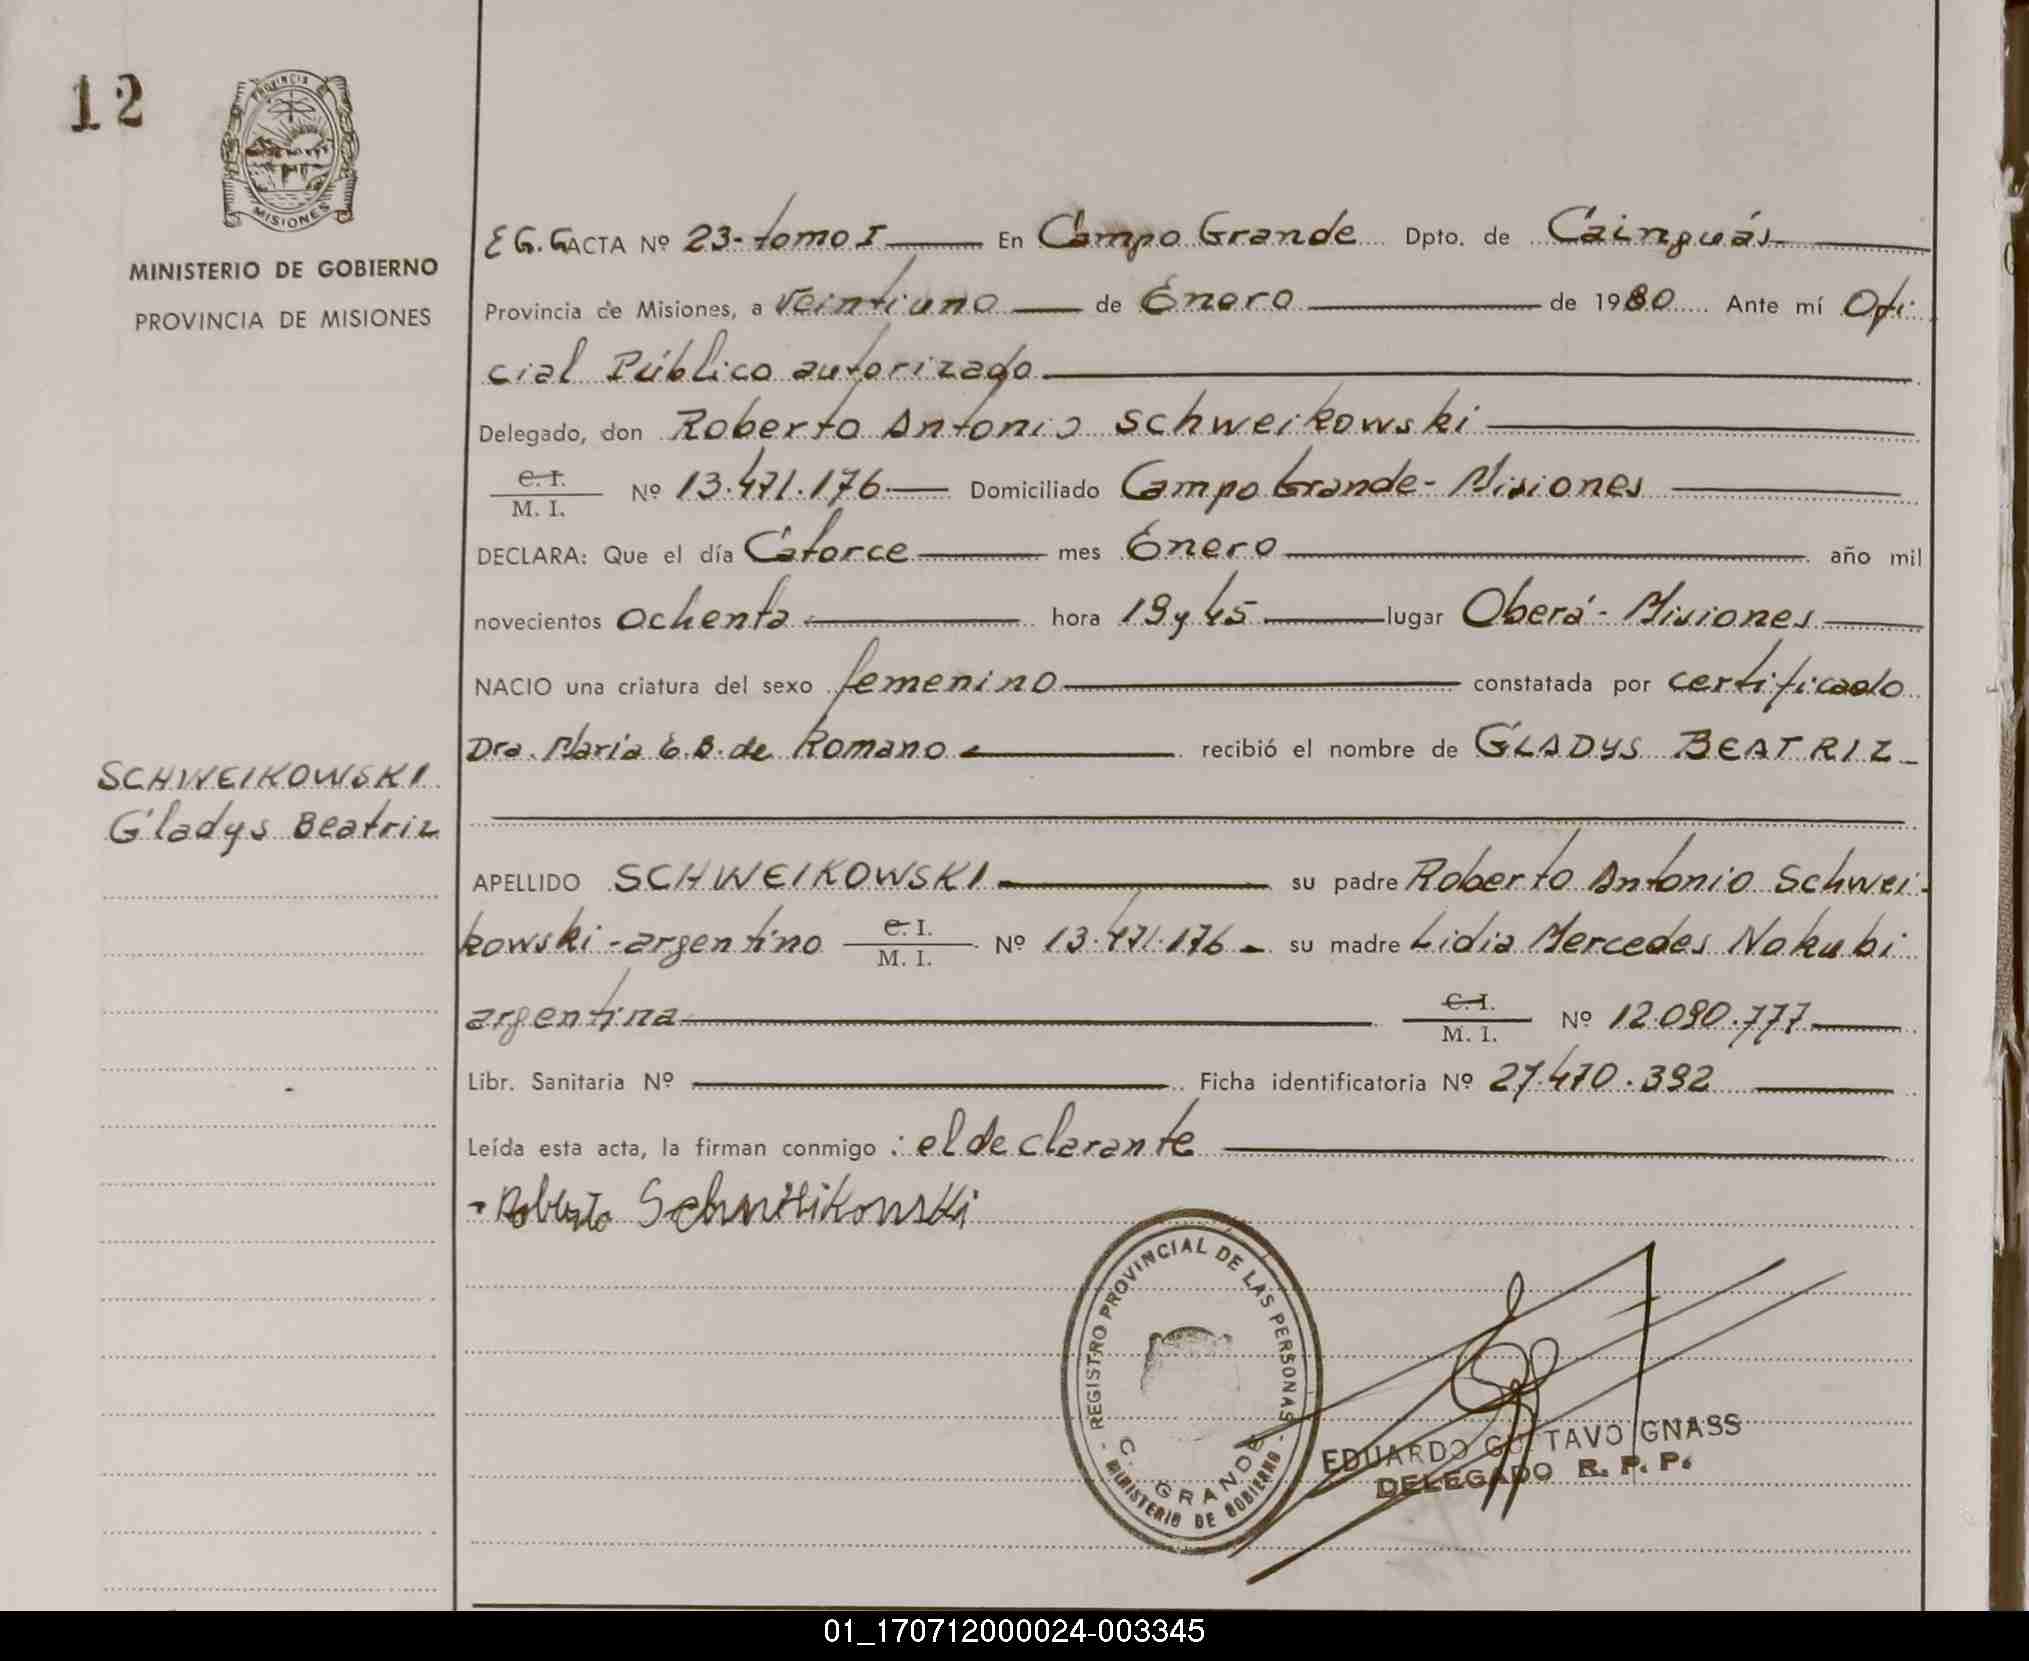 12
PROVINCIA
MISIONES
MINISTERIO DE GOBIERNO
PROVINCIA DE MISIONES
E G. G ACTA Nº 23- tomo I En Campo Grande Dpto. de Cainguás
Provincia de Misiones, a Veintiuno de Enero de 1980 Ante mí Ofi
cial Público autorizado
Delegado, don Roberto Antonio Schweikowski
C. I.
M. I. Nº 13.471.176 Domiciliado Campo Grande - Misiones
DECLARA: Que el día Catorce mes Enero año mil
novecientos ochenta hora 19 y 45 lugar Oberá - Misiones
NACIO una criatura del sexo femenino constatada por certificado
Dra. María E. B. de Romano recibió el nombre de GLADYS BEATRIZ
SCHWEIKOWSKI
Gladys Beatriz
APELLIDO SCHWEIKOWSKI su padre Roberto Antonio Schwei-
kowski - argentino C. I. M. I. Nº 13.471.176 su madre Lidia Mercedes Nakubi
argentina C. I. M. I. Nº 12.090.777
Libr. Sanitaria Nº Ficha identificatoria Nº 27.470.392
Leída esta acta, la firman conmigo : el declarante
Roberto Schweikowski
REGISTRO PROVINCIAL DE LAS PERSONAS
C. GRANDE
MINISTERIO DE GOBIERNO
EDUARDO GUSTAVO GNASS
DELEGADO R. P. P.
01_170712000024-003345